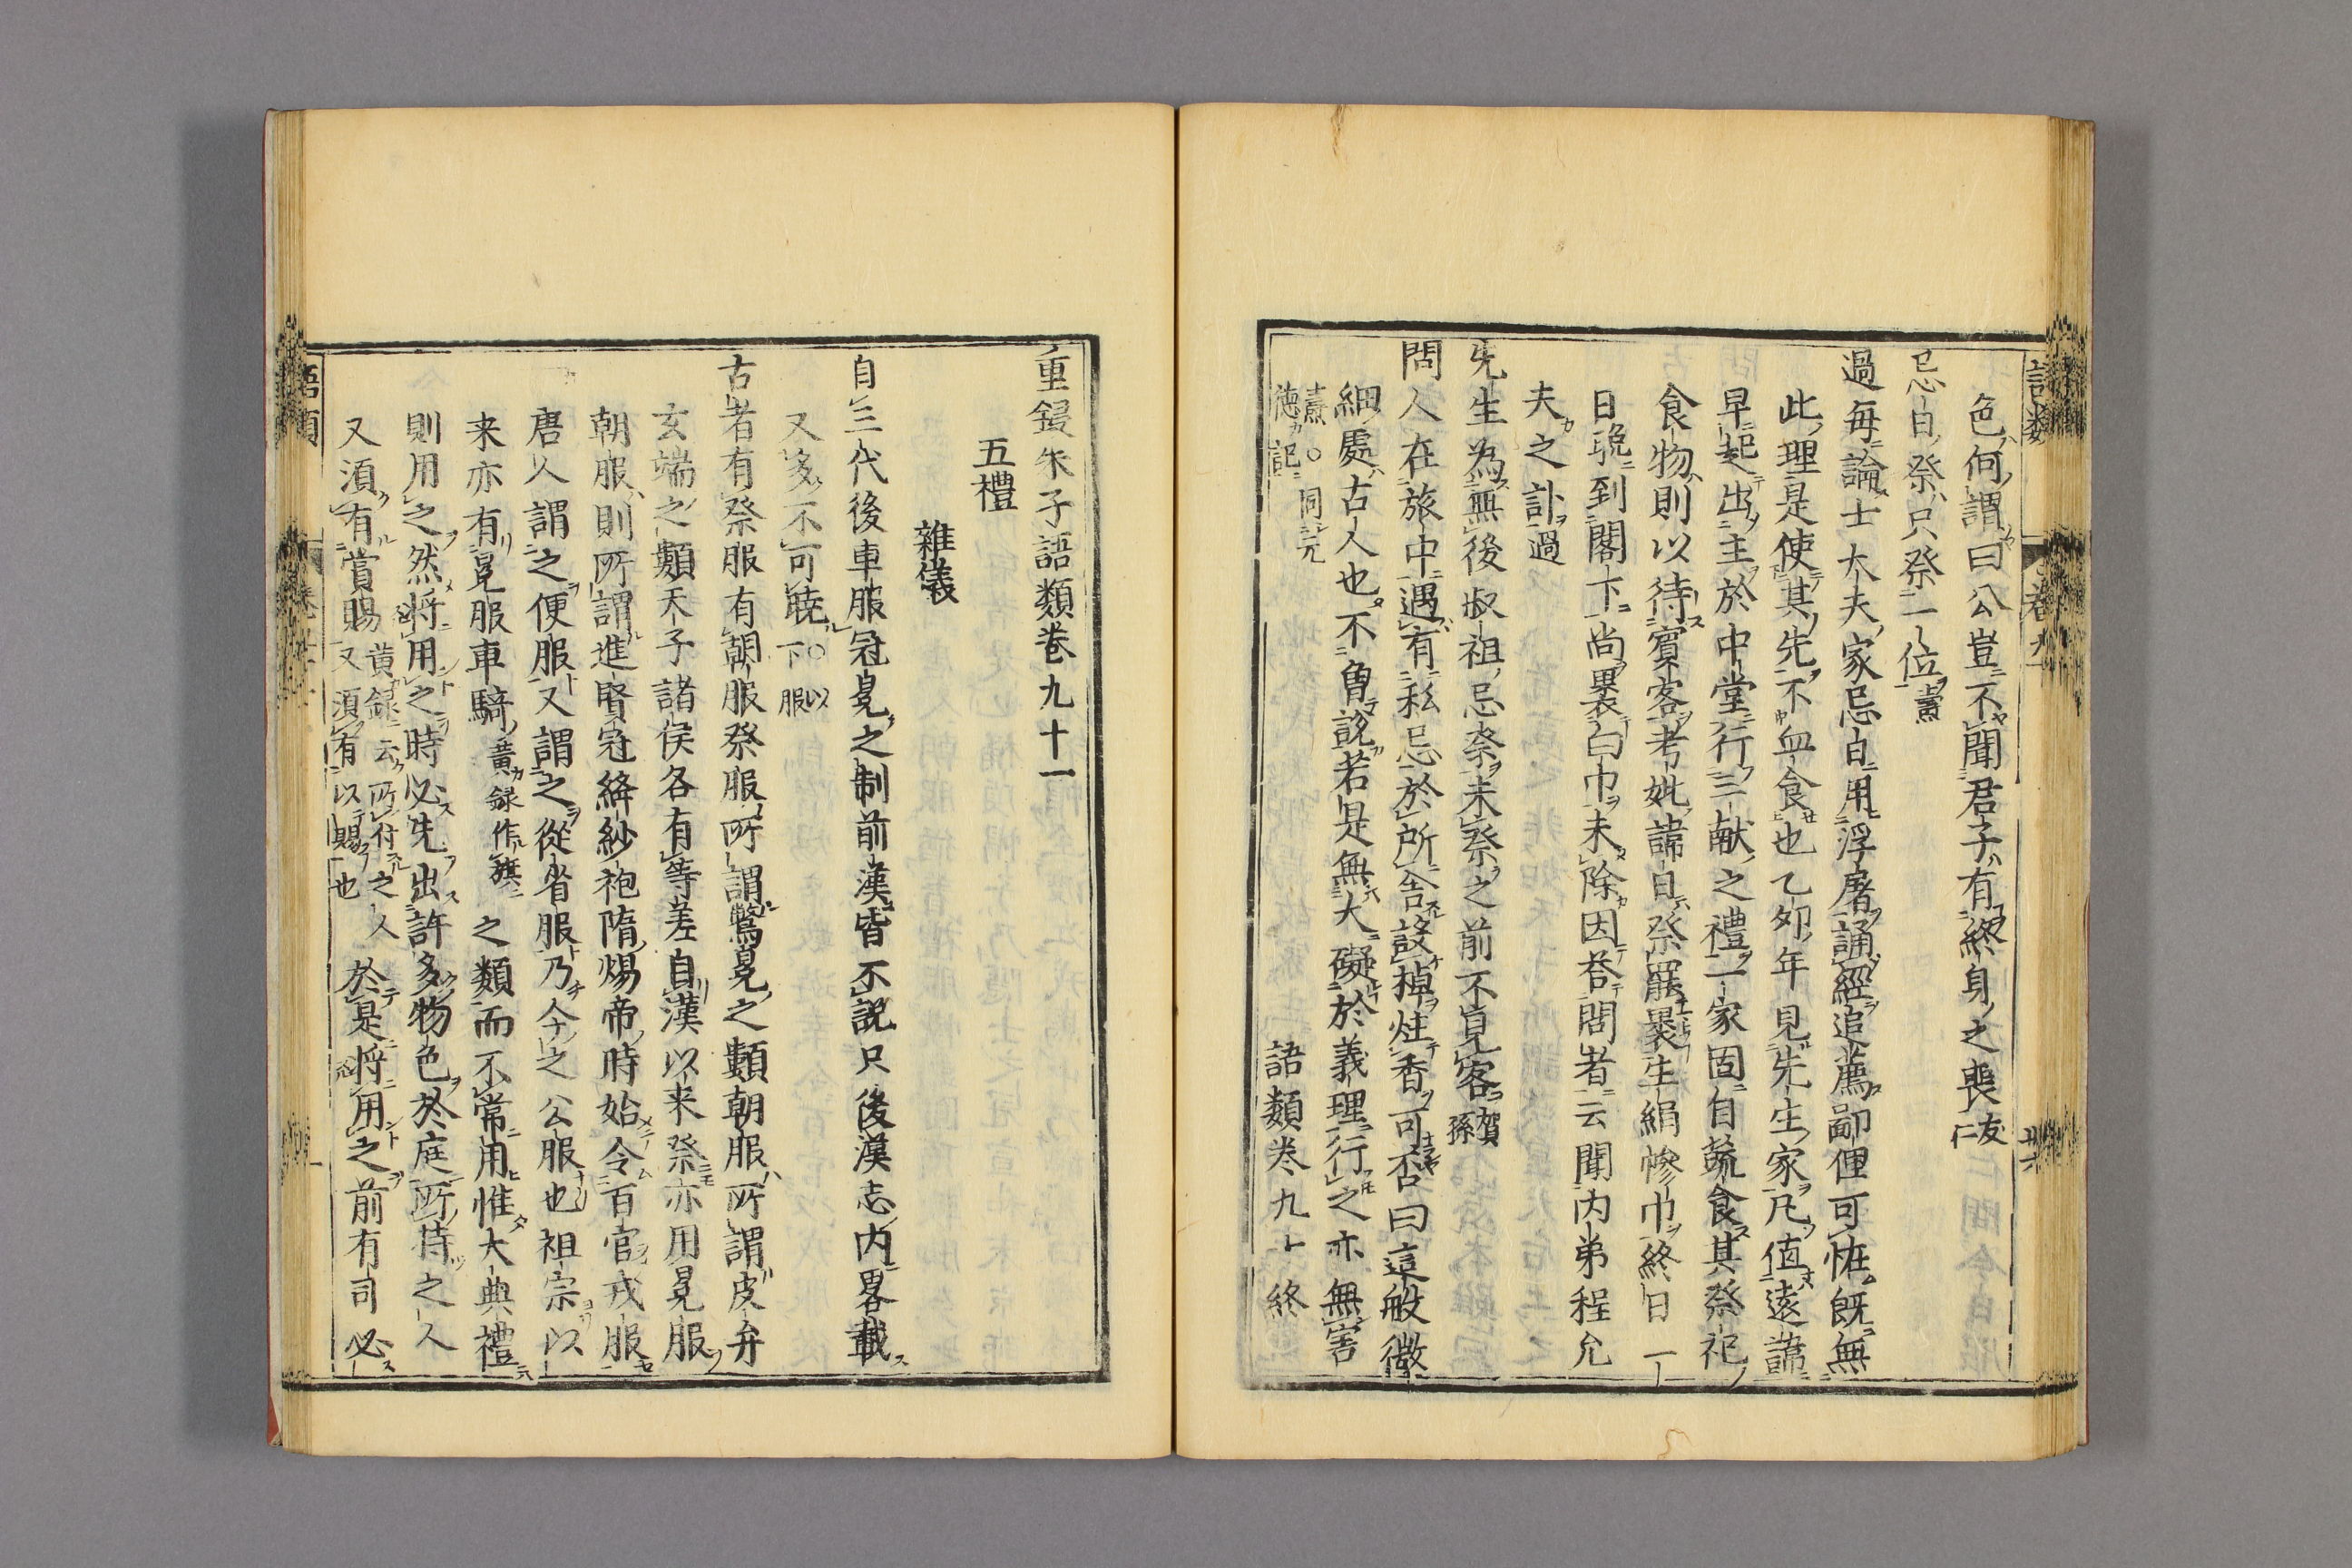 色何謂曰公豈不聞君子有終身之喪友仁
忌日祭只祭一位燾
過每論士大夫家忌日用浮屠誦經追薦鄙俚可怪既無
此理是使其先不血食也乙卯年見先生家凡值遠諱
早起出主於中堂行三献之禮一家固自蔬食其祭祀
食物則以待賓客考妣諱日祭罷裹生絹慘巾終日一
日晩到閣下尚裹白巾未除因荅問者云聞内弟程允
夫之訃過
先生為無後叔祖忌祭未祭之前不見客賀孫
問人在旅中遇有私忌於所舍設掉炷香可否曰這般微
細處古人也不曽說若是無大礙於義理行之亦無害
燾○同
徳記
語類巻九十終
重鋟朱子語類巻九十一
五禮
雜儀
自三代後車服冠冕之制前漢皆不說只後漢志内畧載
又多不可暁○以下服
古者有祭服有朝服祭服所謂鷩冕之類朝服所謂皮弁
玄端之類天子諸侯各有等差自漢以来祭亦用冕服
朝服則所謂進賢冠絳紗袍隋煬帝時始令百官戎服
唐人謂之便服又謂之從省服乃今之公服也祖宗以
来亦有冕服車騎黄録作旗之類而不常用惟大典禮
則用之然将用之時必先出許多物色於庭所持之人
又須有賞賜黄録云所付之人又須有以賜也於是将用之前有司必